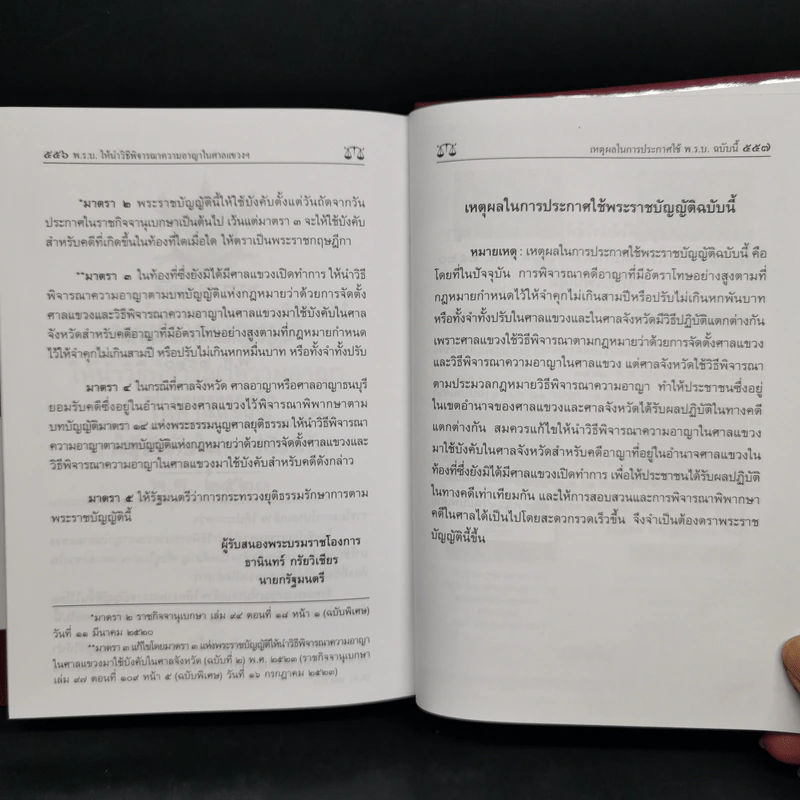 ๕๕๖ พ.ร.บ. ให้นำวิธีพิจารณาความอาญาในศาลแขวงฯ
*มาตรา ๒ พระราชบัญญัตินี้ให้ใช้บังคับตั้งแต่วันถัดจากวัน
ประกาศในราชกิจจานุเบกษาเป็นต้นไป เว้นแต่มาตรา ๓ จะให้ใช้บังคับ
สำหรับคดีที่เกิดขึ้นในท้องที่ใดเมื่อใด ให้ตราเป็นพระราชกฤษฎีกา
**มาตรา ๓ ในท้องที่ซึ่งยังมิได้มีศาลแขวงเปิดทำการ ให้นำวิธี
พิจารณาความอาญาตามบทบัญญัติแห่งกฎหมายว่าด้วยการจัดตั้ง
ศาลแขวงและวิธีพิจารณาความอาญาในศาลแขวงมาใช้บังคับในศาล
จังหวัดสำหรับคดีอาญาที่มีอัตราโทษอย่างสูงตามที่กฎหมายกำหนด
ไว้ให้จำคุกไม่เกินสามปี หรือปรับไม่เกินหกหมื่นบาท หรือทั้งจำทั้งปรับ
มาตรา ๔ ในกรณีที่ศาลจังหวัด ศาลอาญาหรือศาลอาญาธนบุรี
ยอมรับคดีซึ่งอยู่ในอำนาจของศาลแขวงไว้พิจารณาพิพากษาตาม
บทบัญญัติมาตรา ๑๔ แห่งพระธรรมนูญศาลยุติธรรม ให้นำวิธีพิจารณา
ความอาญาตามบทบัญญัติแห่งกฎหมายว่าด้วยการจัดตั้งศาลแขวงและ
วิธีพิจารณาความอาญาในศาลแขวงมาใช้บังคับสำหรับคดีดังกล่าว
มาตรา ๕ ให้รัฐมนตรีว่าการกระทรวงยุติธรรมรักษาการตาม
พระราชบัญญัตินี้
ผู้รับสนองพระบรมราชโองการ
ธานินทร์ กรัยวิเชียร
นายกรัฐมนตรี
*มาตรา ๒ ราชกิจจานุเบกษา เล่ม ๙๔ ตอนที่ ๑๘ หน้า ๑ (ฉบับพิเศษ)
วันที่ ๑๑ มีนาคม ๒๕๒๐
**มาตรา ๓ แก้ไขโดยมาตรา ๓ แห่งพระราชบัญญัติให้นำวิธีพิจารณาความอาญา
ในศาลแขวงมาใช้บังคับในศาลจังหวัด (ฉบับที่ ๒) พ.ศ. ๒๕๒๓ (ราชกิจจานุเบกษา
เล่ม ๙๗ ตอนที่ ๑๐๙ หน้า ๕ (ฉบับพิเศษ) วันที่ ๑๖ กรกฎาคม ๒๕๒๓)
เหตุผลในการประกาศใช้ พ.ร.บ. ฉบับนี้ ๕๕๗
เหตุผลในการประกาศใช้พระราชบัญญัติฉบับนี้
หมายเหตุ : เหตุผลในการประกาศใช้พระราชบัญญัติฉบับนี้ คือ
โดยที่ในปัจจุบัน การพิจารณาคดีอาญาที่มีอัตราโทษอย่างสูงตามที่
กฎหมายกำหนดไว้ให้จำคุกไม่เกินสามปีหรือปรับไม่เกินหกพันบาท
หรือทั้งจำทั้งปรับในศาลแขวงและในศาลจังหวัดมีวิธีปฏิบัติแตกต่างกัน
เพราะศาลแขวงใช้วิธีพิจารณาตามกฎหมายว่าด้วยการจัดตั้งศาลแขวง
และวิธีพิจารณาความอาญาในศาลแขวง แต่ศาลจังหวัดใช้วิธีพิจารณา
ตามประมวลกฎหมายวิธีพิจารณาความอาญา ทำให้ประชาชนซึ่งอยู่
ในเขตอำนาจของศาลแขวงและศาลจังหวัดได้รับผลปฏิบัติในทางคดี
แตกต่างกัน สมควรแก้ไขให้นำวิธีพิจารณาความอาญาในศาลแขวง
มาใช้บังคับในศาลจังหวัดสำหรับคดีอาญาที่อยู่ในอำนาจศาลแขวงใน
ท้องที่ซึ่งยังมิได้มีศาลแขวงเปิดทำการ เพื่อให้ประชาชนได้รับผลปฏิบัติ
ในทางคดีเท่าเทียมกัน และให้การสอบสวนและการพิจารณาพิพากษา
คดีในศาลได้เป็นไปโดยสะดวกรวดเร็วขึ้น จึงจำเป็นต้องตราพระราช
บัญญัตินี้ขึ้น